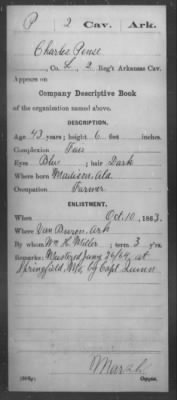 P 2 Cav. Ark.
Charles Pense
, Co. L, 2 Reg't Arkansas Cav.
Appears on
Company Descriptive Book
of the organization named above.
DESCRIPTION.
Age 43 years; height 6 feet inches.
Complexion Fair
Eyes Blue; hair Dark
Where born Madison, Ala
Occupation Farmer
ENLISTMENT.
When Oct. 10, 1863.
Where Van Buren, Ark
By whom Wm H. Miller; term 3 y'rs.
Remarks: Mustered Jany 26/64 at
Springfield, Mo. by Capt Lunn
Marsh
Copyist.